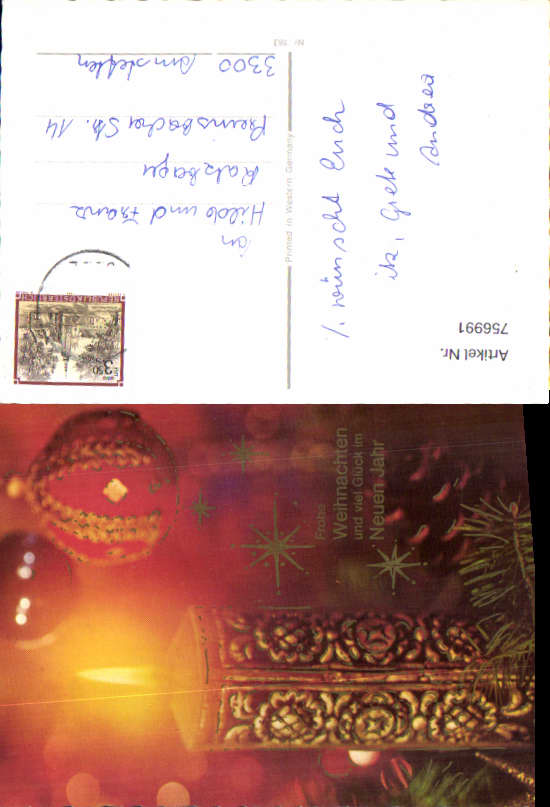 Artikel Nr.
756991
/. wünscht Euch
, Grete und
Andrea
Printed in Western Germany
Nr. 563
REPUBLIK ÖSTERREICH
S 3.50
an
Hilde und Franz
Str. 14
3300 Amstetten
Frohe
Weihnachten
und viel Glück im
Neuen Jahr